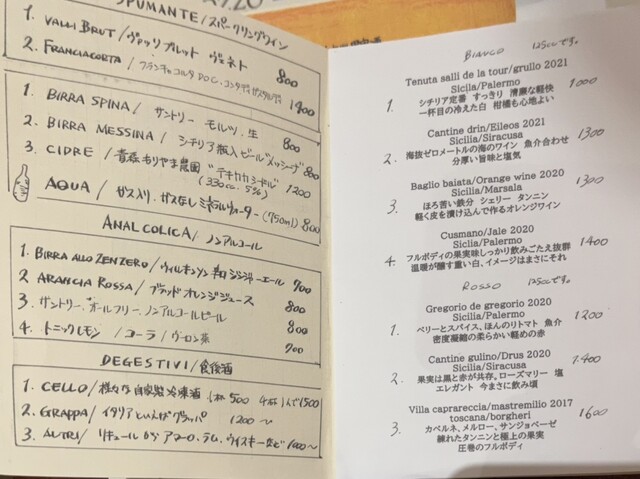 SPUMANTE/スパークリングワイン
1. VALLI BRUT/ヴァッリブルット ヴェネト 800
2. FRANCIACORTA/フランチャコルタ D.O.C. 1400
1. BIRRA SPINA/サントリー モルツ.生 800
2. BIRRA MESSINA/シチリア瓶入ビール"メッシーナ" 800
3. CIDRE/青森もりやま農園"テキカカシードル" 1200
(330cc. 5%)
AQUA/ガス入り.ガスなしミネラルウォーター(750ml) 800
ANALCOLICA/ノンアルコール
1. BIRRA ALLO ZENZERO/ウィルキンソン 辛口ジンジャーエール 700
2. ARANCIA ROSSA/ブラッドオレンジジュース 800
3. サントリー"オールフリー.ノンアルコールビール 800
4. トニックレモン/コーラ/ウーロン茶 700
DEGESTIVI/食後酒
1. CELLO/様々な自家製冷凍酒 1杯500 4杯1500
2. GRAPPA/イタリアといえばグラッパ 1200〜
3. ALTRI/リキュールからアマーロ.ラム.ウイスキーなど 1000〜
BIANCO 125ccです。
Tenuta salli de la tour/grullo 2021
Sicila/Palermo
1. シチリア定番 すっきり 清廉な軽快 1000
一杯目の冷えた白 柑橘も心地よい
Cantine drin/Eileos 2021
Sicilia/Siracusa
2. 海抜ゼロメートルの海のワイン 魚介合わせ 1300
分厚い旨味と塩気
Baglio baiata/Orange wine 2020
Sicilia/Marsala
3. ほろ苦い鉄分 シェリー タンニン 1300
軽く皮を漬け込んで作るオレンジワイン
Cusmano/Jale 2020
Sicilia/Palermo
4. フルボディの果実味しっかり飲みごたえ抜群 1400
温暖が醸す重い白、イメージはまさにそれ
ROSSO 125ccです。
Gregorio de gregorio 2020
Sicilia/Palermo
1. ベリーとスパイス、ほんのりトマト 魚介 1200
密度凝縮の柔らかい軽めの赤
Cantine gulino/Drus 2020
Sicilia/Siracusa
2. 果実は黒と赤が共存。ローズマリー 塩 1400
エレガント 今まさに飲み頃
Villa caprareccia/mastremilio 2017
toscana/borgheri
3. カベルネ、メルロー、サンジョベーゼ 1600
練れたタンニンと極上の果実
圧巻のフルボディ